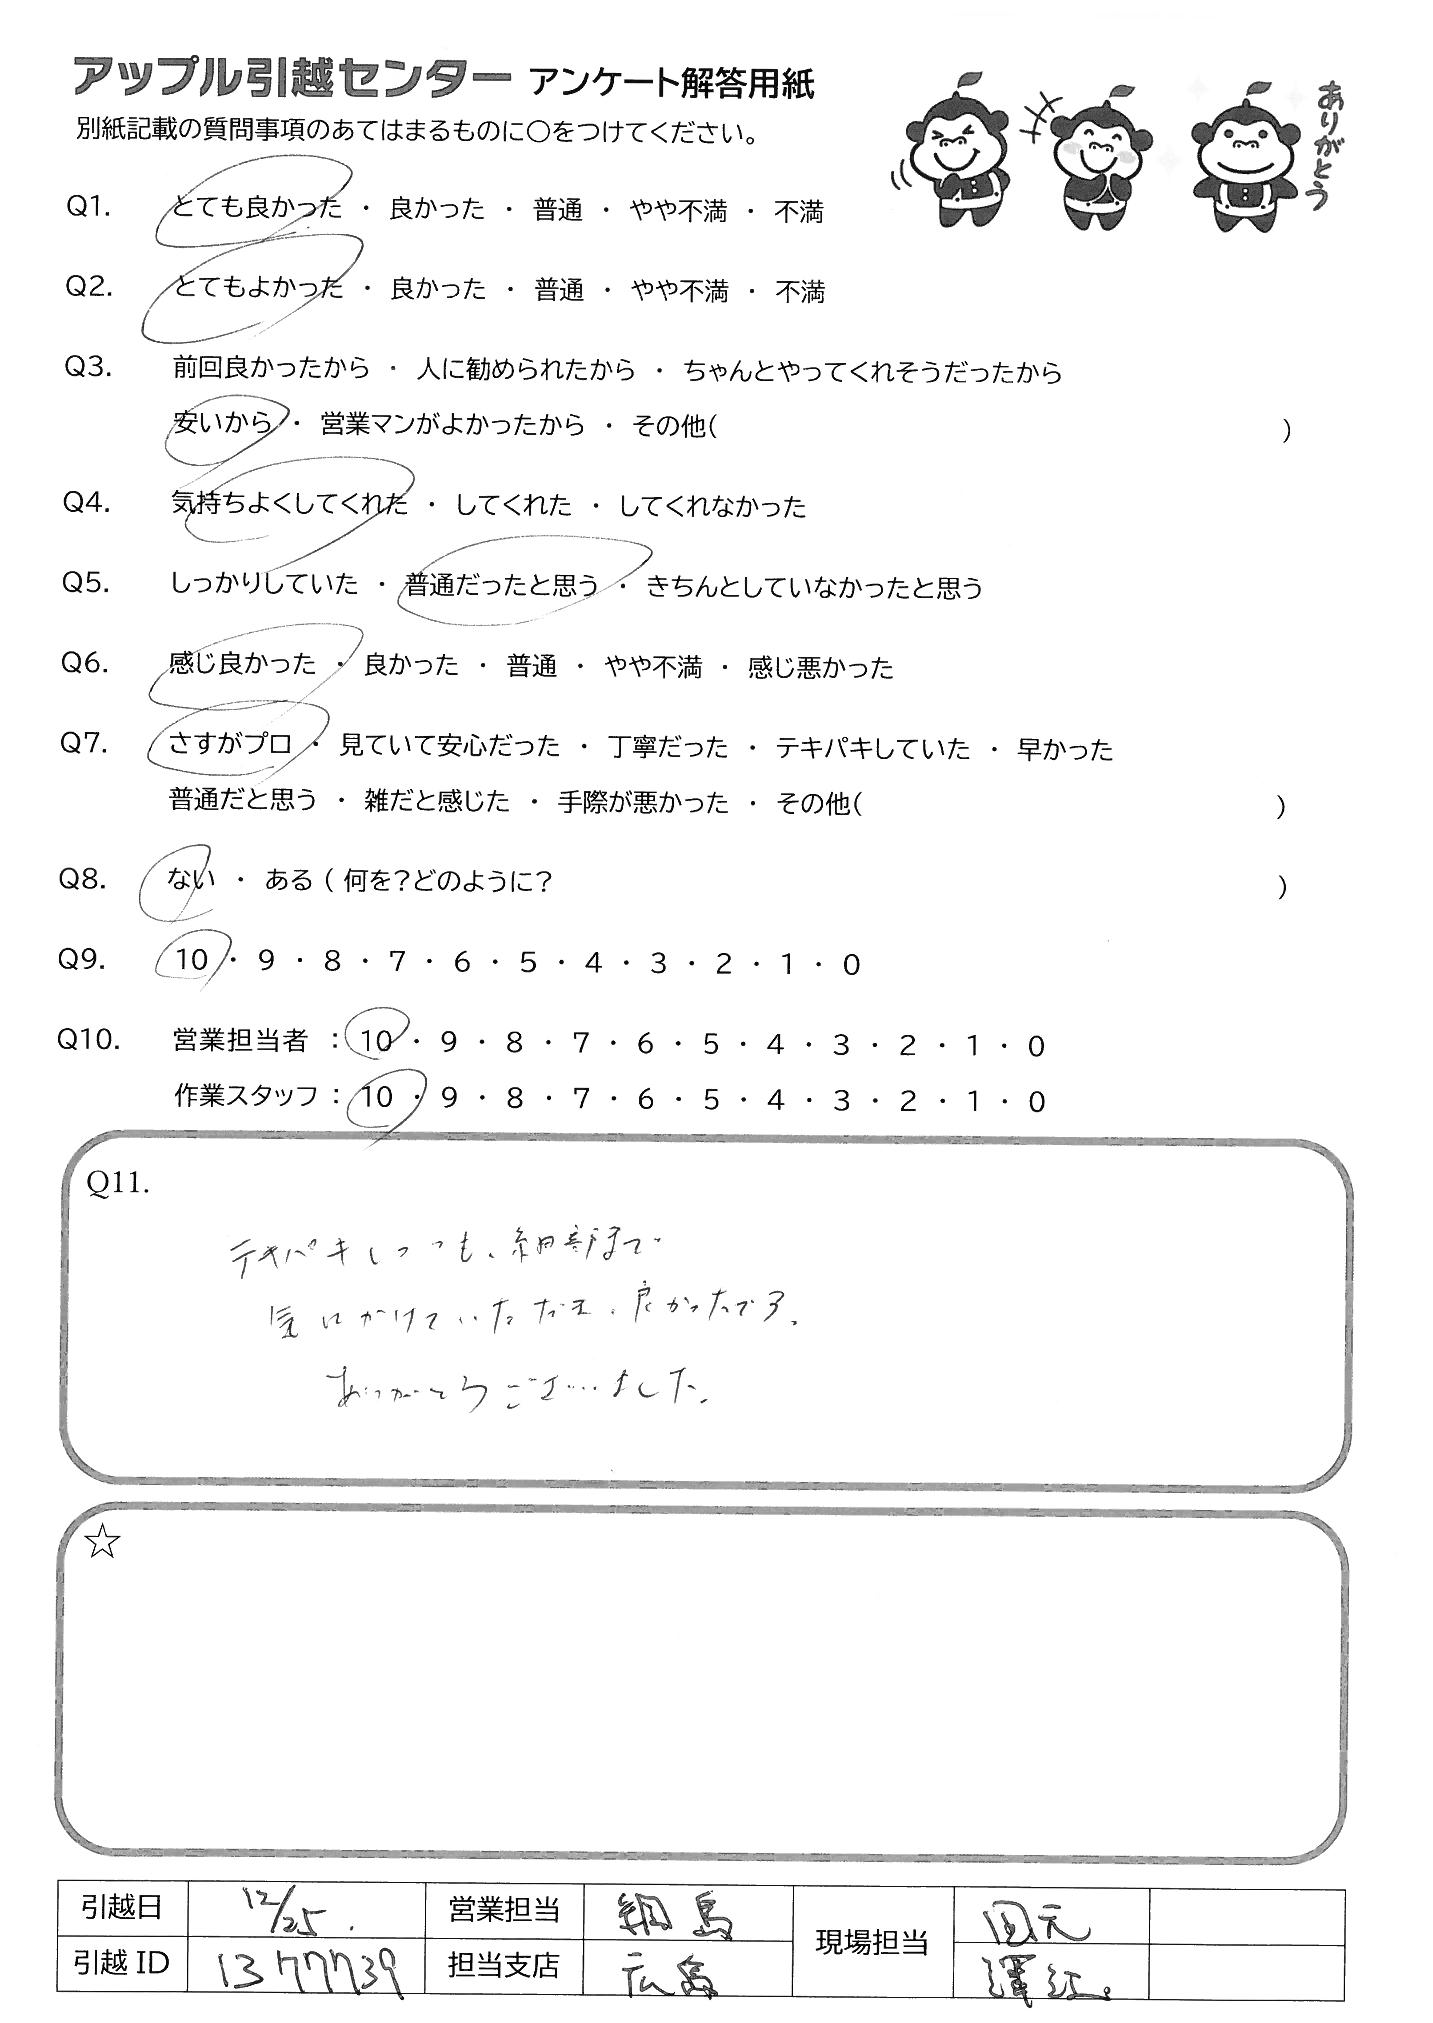 アップル引越センター アンケート解答用紙
ありがとう
別紙記載の質問事項のあてはまるものに○をつけてください。
Q1. とても良かった ・ 良かった ・ 普通 ・ やや不満 ・ 不満
Q2. とてもよかった ・ 良かった ・ 普通 ・ やや不満 ・ 不満
Q3. 前回良かったから ・ 人に勧められたから ・ ちゃんとやってくれそうだったから
安いから ・ 営業マンがよかったから ・ その他( )
Q4. 気持ちよくしてくれた ・ してくれた ・ してくれなかった
Q5. しっかりしていた ・ 普通だったと思う ・ きちんとしていなかったと思う
Q6. 感じ良かった ・ 良かった ・ 普通 ・ やや不満 ・ 感じ悪かった
Q7. さすがプロ ・ 見ていて安心だった ・ 丁寧だった ・ テキパキしていた ・ 早かった
普通だと思う ・ 雑だと感じた ・ 手際が悪かった ・ その他( )
Q8. ない ・ ある ( 何を?どのように? )
Q9. 10 ・ 9 ・ 8 ・ 7 ・ 6 ・ 5 ・ 4 ・ 3 ・ 2 ・ 1 ・ 0
Q10. 営業担当者 : 10 ・ 9 ・ 8 ・ 7 ・ 6 ・ 5 ・ 4 ・ 3 ・ 2 ・ 1 ・ 0
作業スタッフ : 10 ・ 9 ・ 8 ・ 7 ・ 6 ・ 5 ・ 4 ・ 3 ・ 2 ・ 1 ・ 0
Q11.
テキパキしつつも、細部まで
気にかけていただき、良かったです。
ありがとうございました。
☆
引越日 12/25. 営業担当 綱島 現場担当 田元
引越ID 1377739 担当支店 広島 澤江